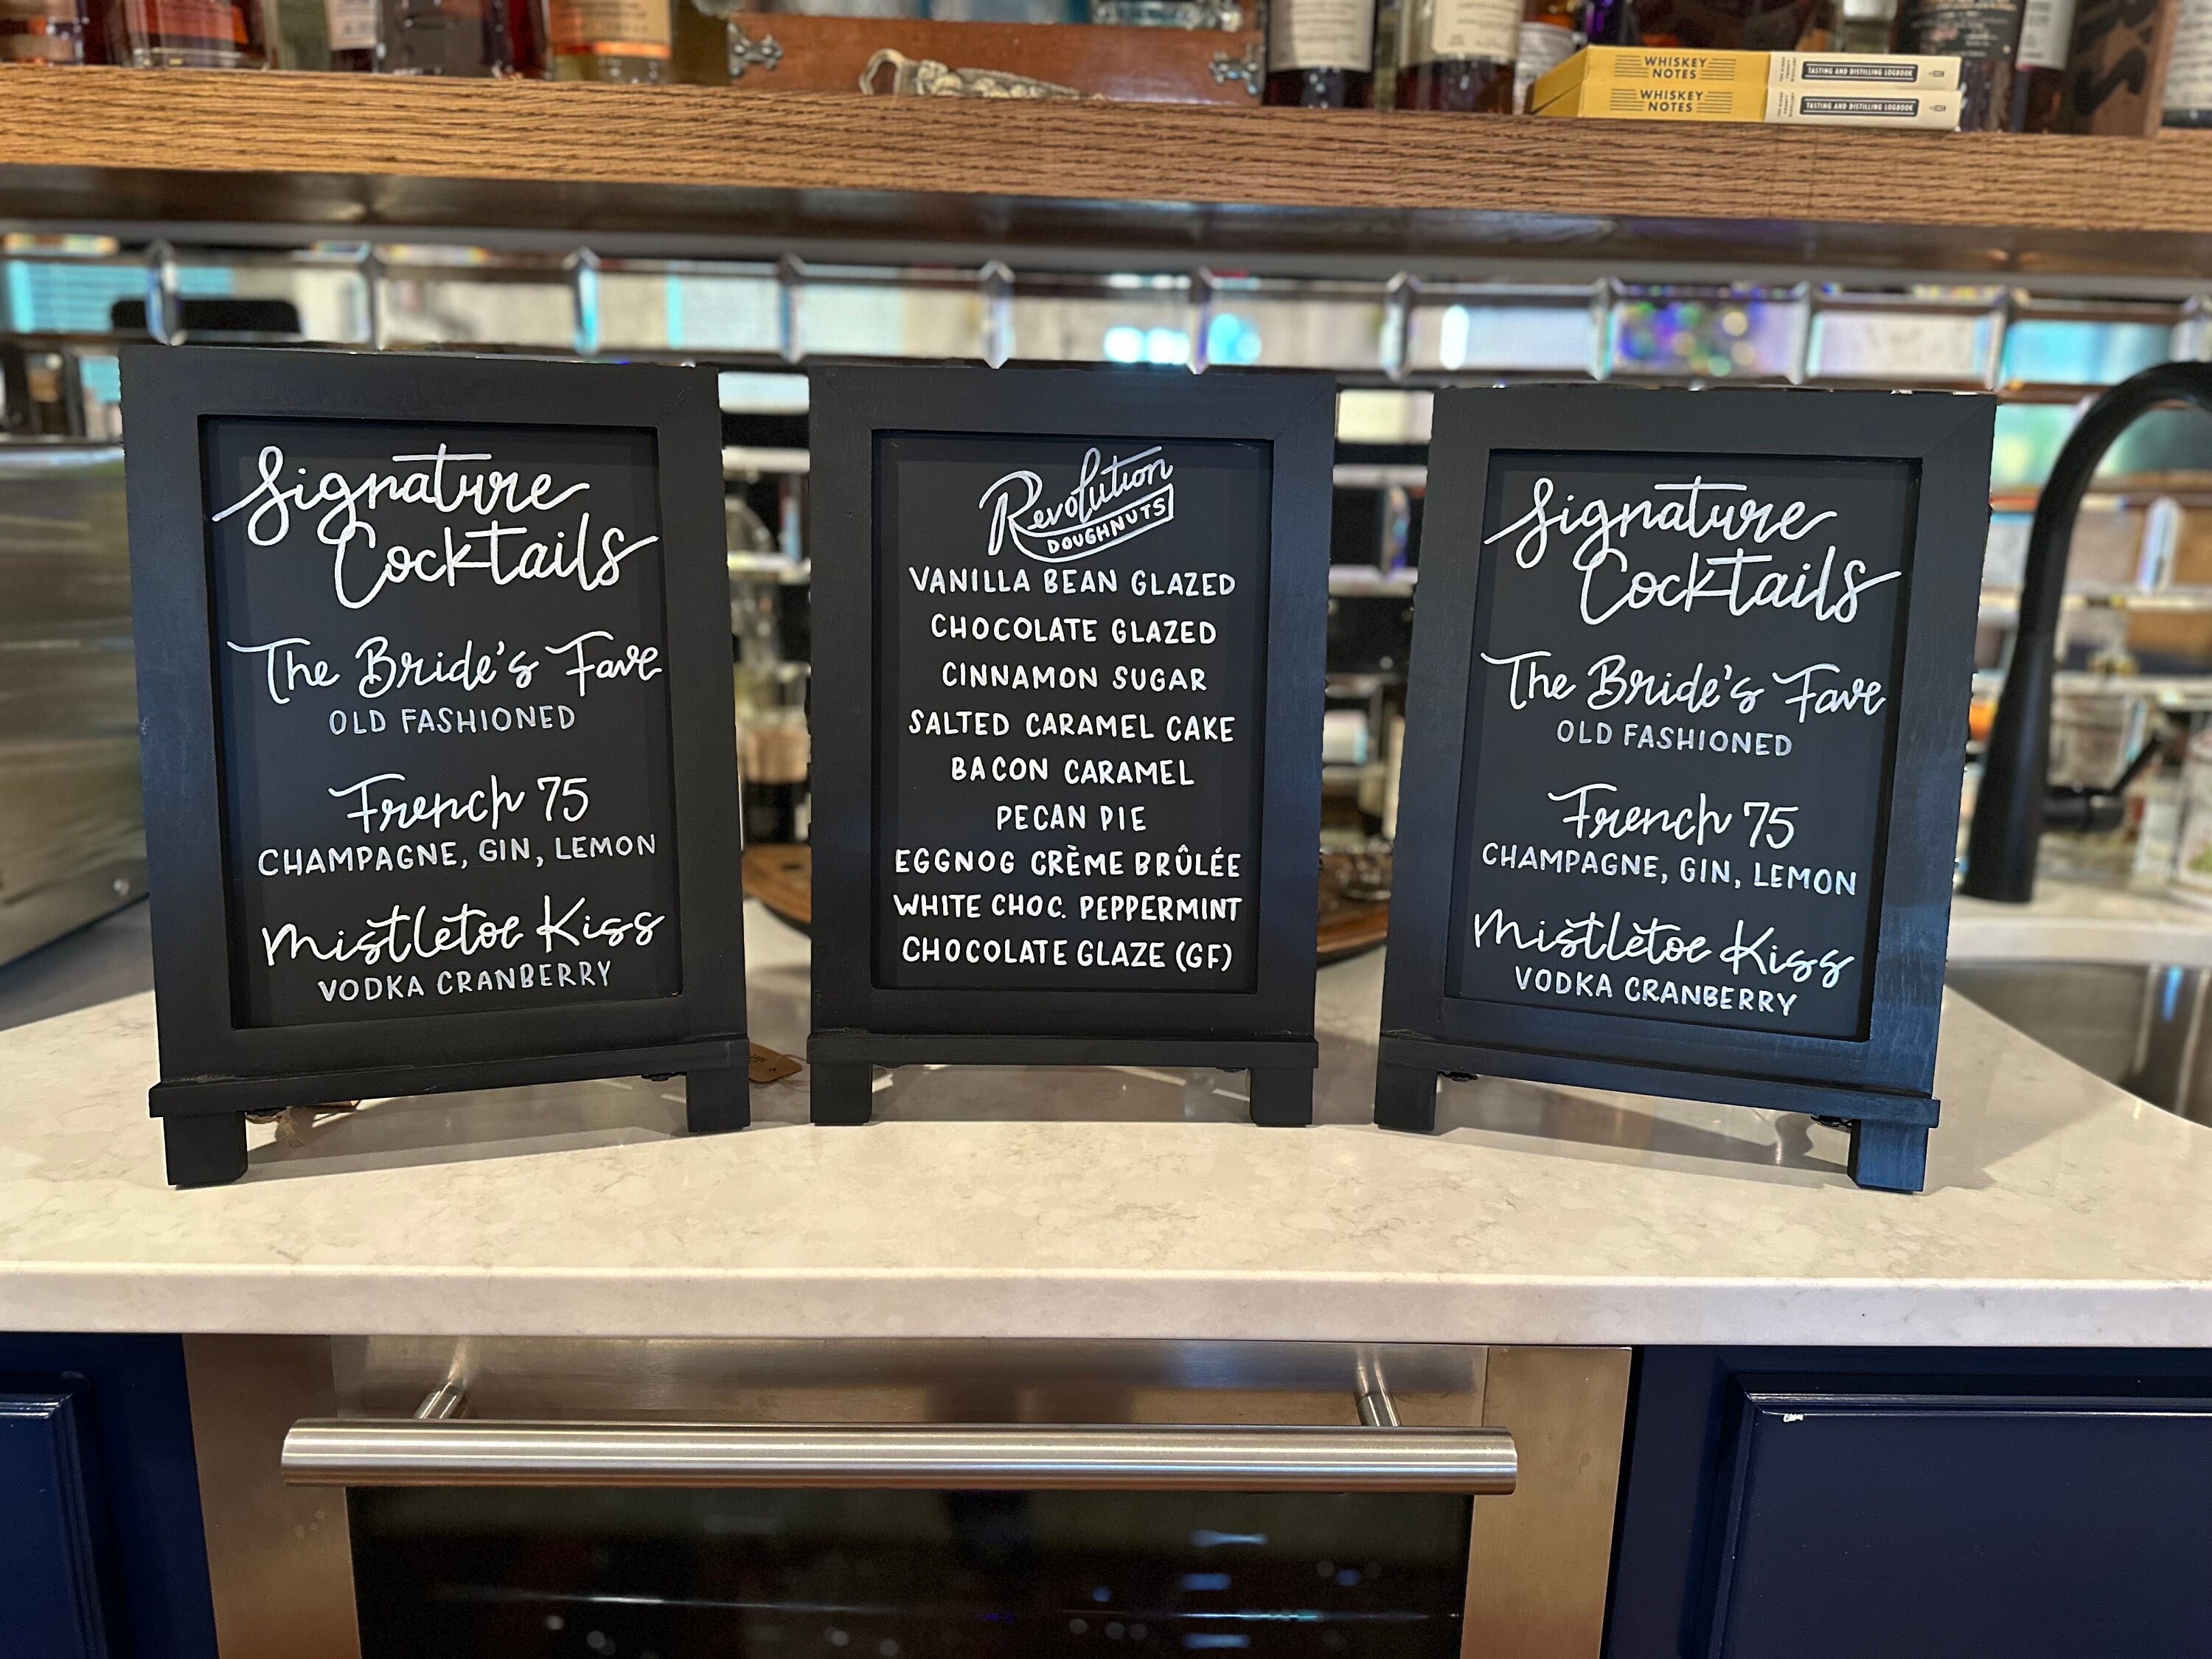 WHISKEY
NOTES
TASTING AND DISTILLING LOGBOOK
WHISKEY
NOTES
TASTING AND DISTILLING LOGBOOK
Signature
Cocktails
The Bride's Fave
OLD FASHIONED
French 75
CHAMPAGNE, GIN, LEMON
Mistletoe Kiss
VODKA CRANBERRY
Revolution
DOUGHNUTS
VANILLA BEAN GLAZED
CHOCOLATE GLAZED
CINNAMON SUGAR
SALTED CARAMEL CAKE
BACON CARAMEL
PECAN PIE
EGGNOG CRÈME BRÛLÉE
WHITE CHOC. PEPPERMINT
CHOCOLATE GLAZE (GF)
Signature
Cocktails
The Bride's Fave
OLD FASHIONED
French 75
CHAMPAGNE, GIN, LEMON
Mistletoe Kiss
VODKA CRANBERRY